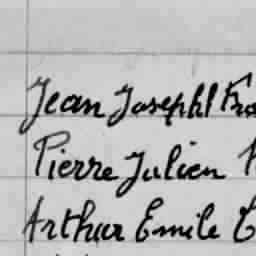 Jean Josephl Fra
Pierre Julien
Arthur Emile